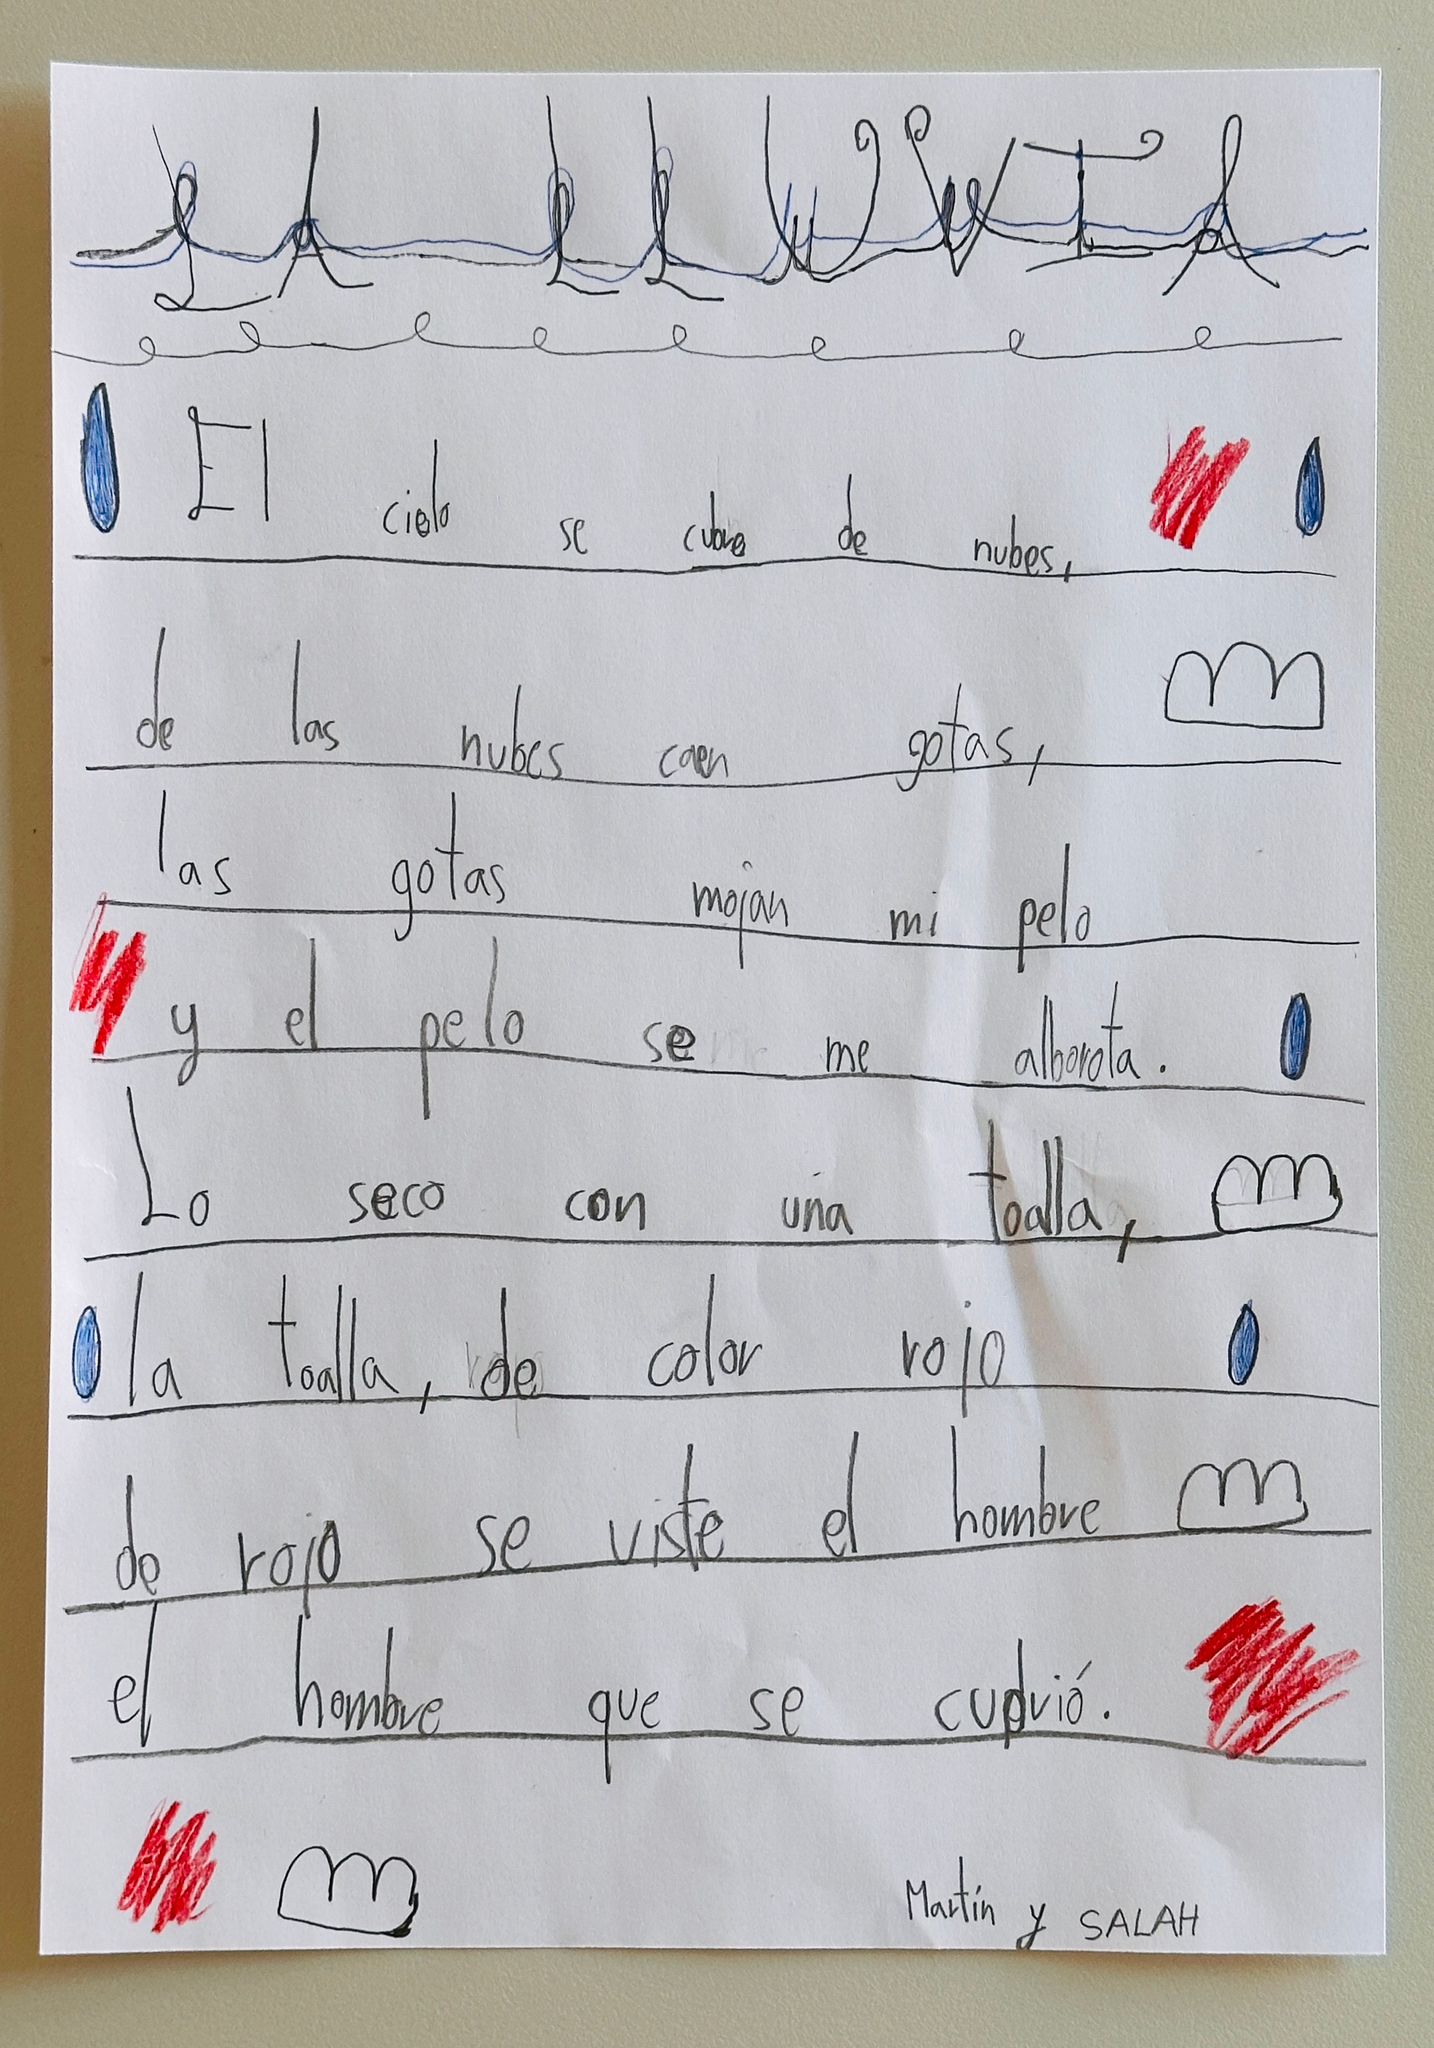 LA LLUVIA
El cielo se cubre de nubes,
de las nubes caen gotas,
las gotas mojan mi pelo
y el pelo se me alborota.
Lo seco con una toalla,
la toalla, de color rojo
de rojo se viste el hombre
el hombre que se cubrió.
Martín y SALAH